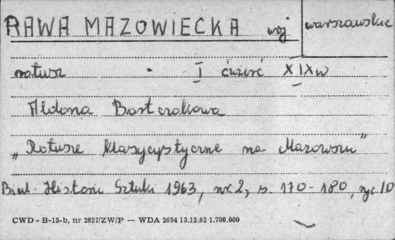 RAWA MAZOWIECKA woj warszawskie
ratusz I ćwierć XIXw
Aldona Bartczakowa
„Ratusze klasycystyczne na Mazowszu"
Biul. Historii Sztuki 1963, nr 2, s. 170-180, ryc. 10
CWD - B-15-b, nr 2827/ZW/P — WDA 2694 13.12.62 1.700.000